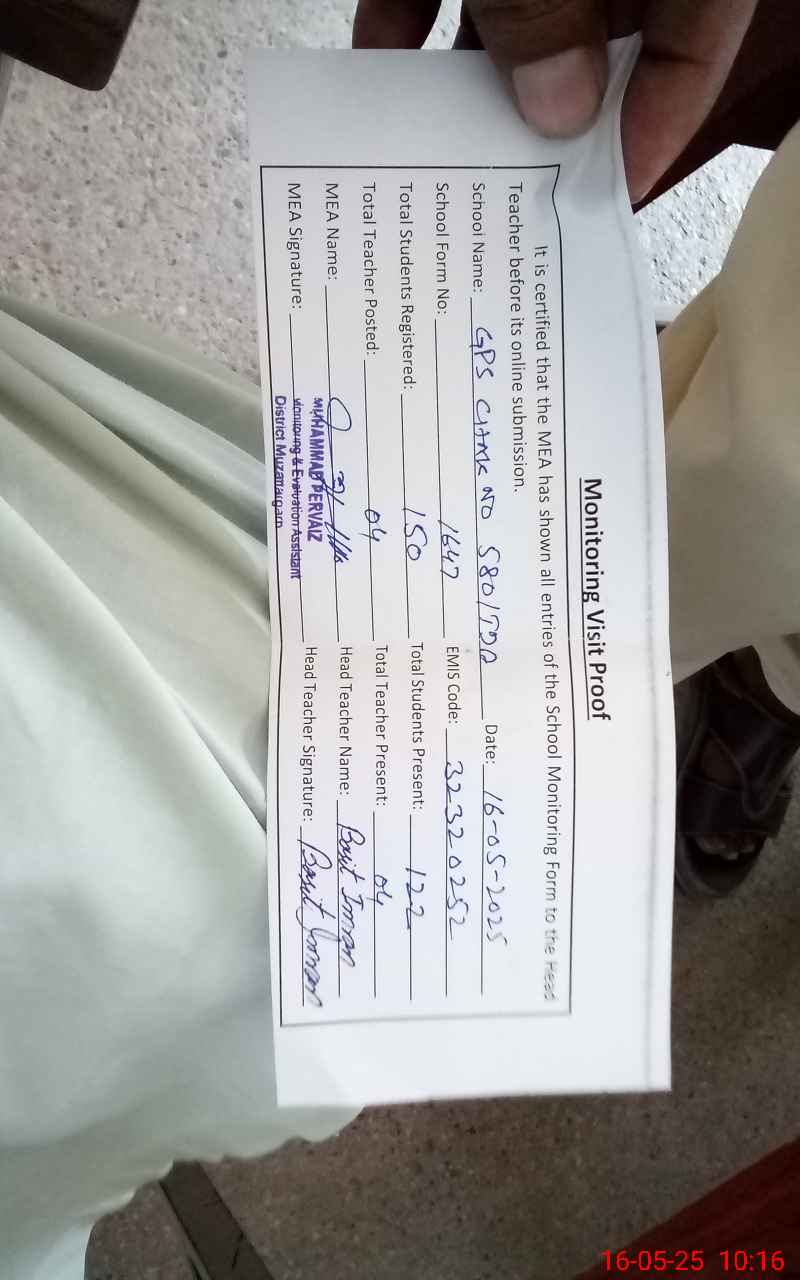 Monitoring Visit Proof
It is certified that the MEA has shown all entries of the School Monitoring Form to the Head
Teacher before its online submission.
School Name: GPS CHAK NO 580/TDA Date: 16-05-2025
School Form No: 1647 EMIS Code: 32320252
Total Students Registered: 150 Total Students Present: 122
Total Teacher Posted: 04 Total Teacher Present: 04
MEA Name: Head Teacher Name: Basit Imran
MUHAMMAD PERVAIZ
MEA Signature: Monitoring & Evaluation Assistant Head Teacher Signature: Basit Imran
District Muzaffargarh
16-05-25 10:16